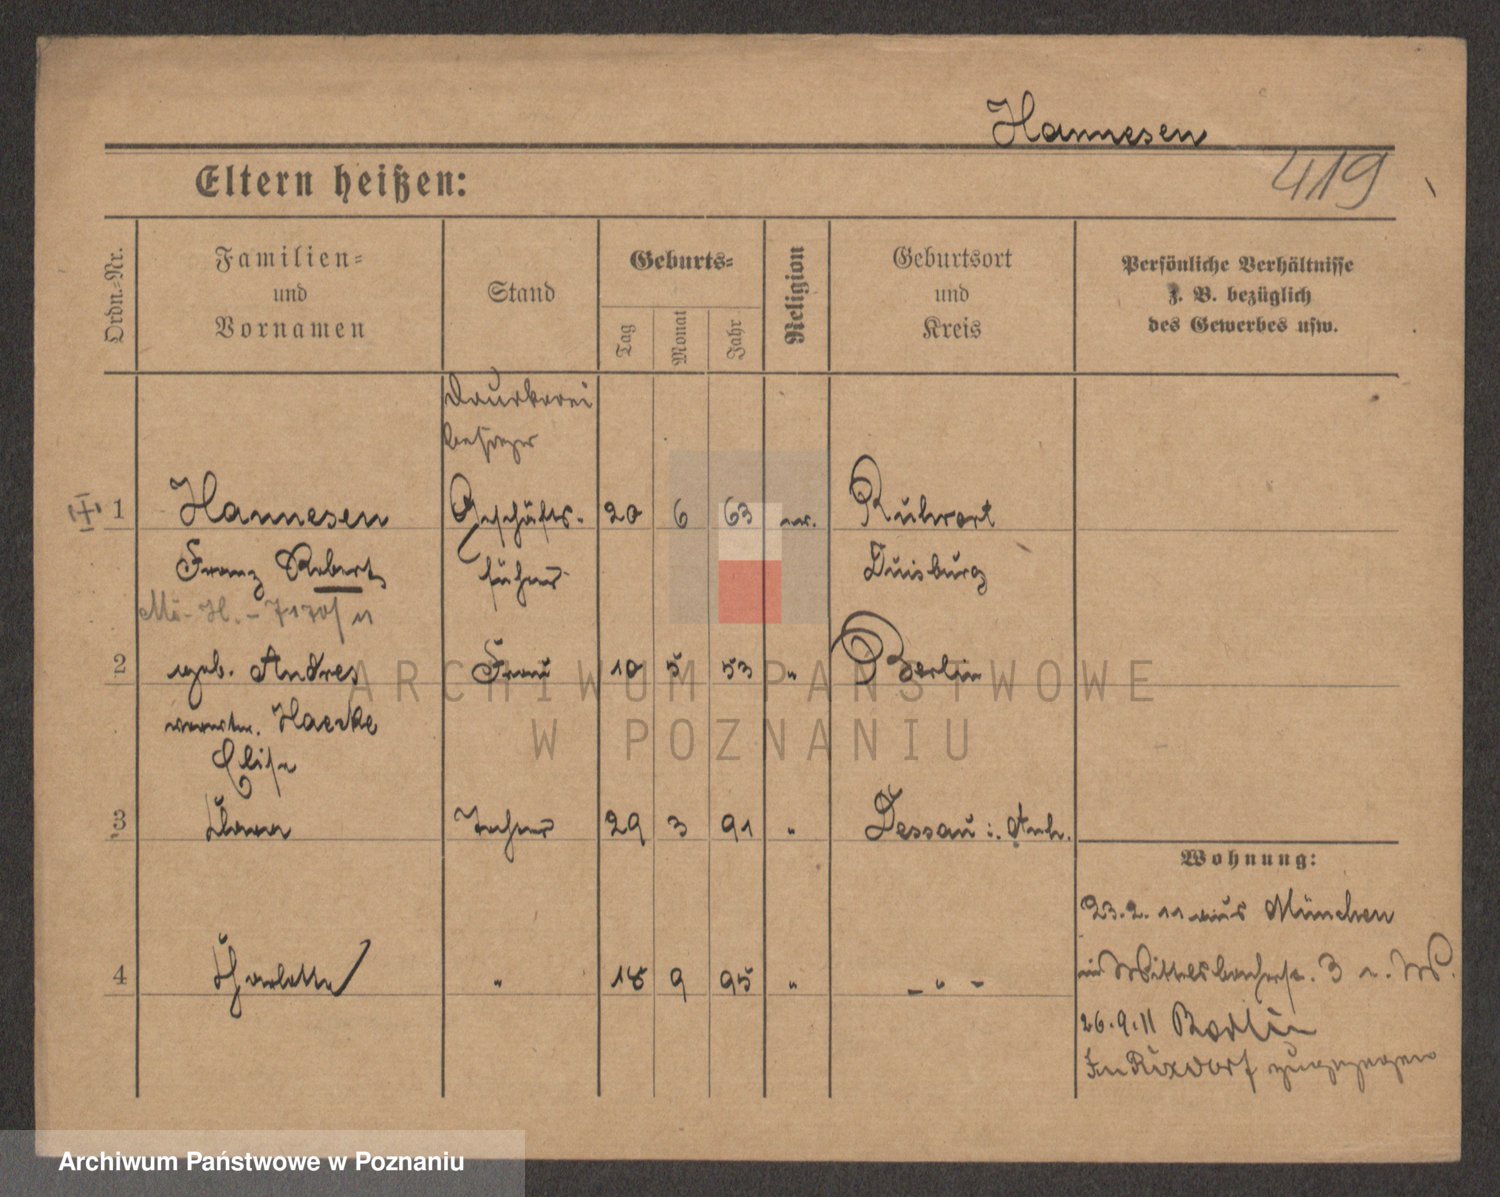 Hannesen
419
Eltern heißen:
Ordn.-Nr.
Familien-
und
Vornamen
Stand
Geburts-
Tag
Monat
Jahr
Religion
Geburtsort
und
Kreis
Persönliche Verhältnisse
z. B. bezüglich
des Gewerbes usw.
Druckerei
besitzer
1 Hannesen Geschäfts- 20 6 63 ev. Ruhrort
Franz Robert führer Duisburg
2 geb. Andres Frau 10 5 53 " Berlin
verwitw. Haecke
Elise
3 Tochter 29 3 91 " Dessau i. Anh.
Wohnung:
23.2.11 aus München
4 Charlotte " 18 9 95 " – " –
Wittelsbacherstr. 3
26.9.11 Berlin
In Rixdorf zugezogen
ARCHIWUM PAŃSTWOWE
W POZNANIU
Archiwum Państwowe w Poznaniu